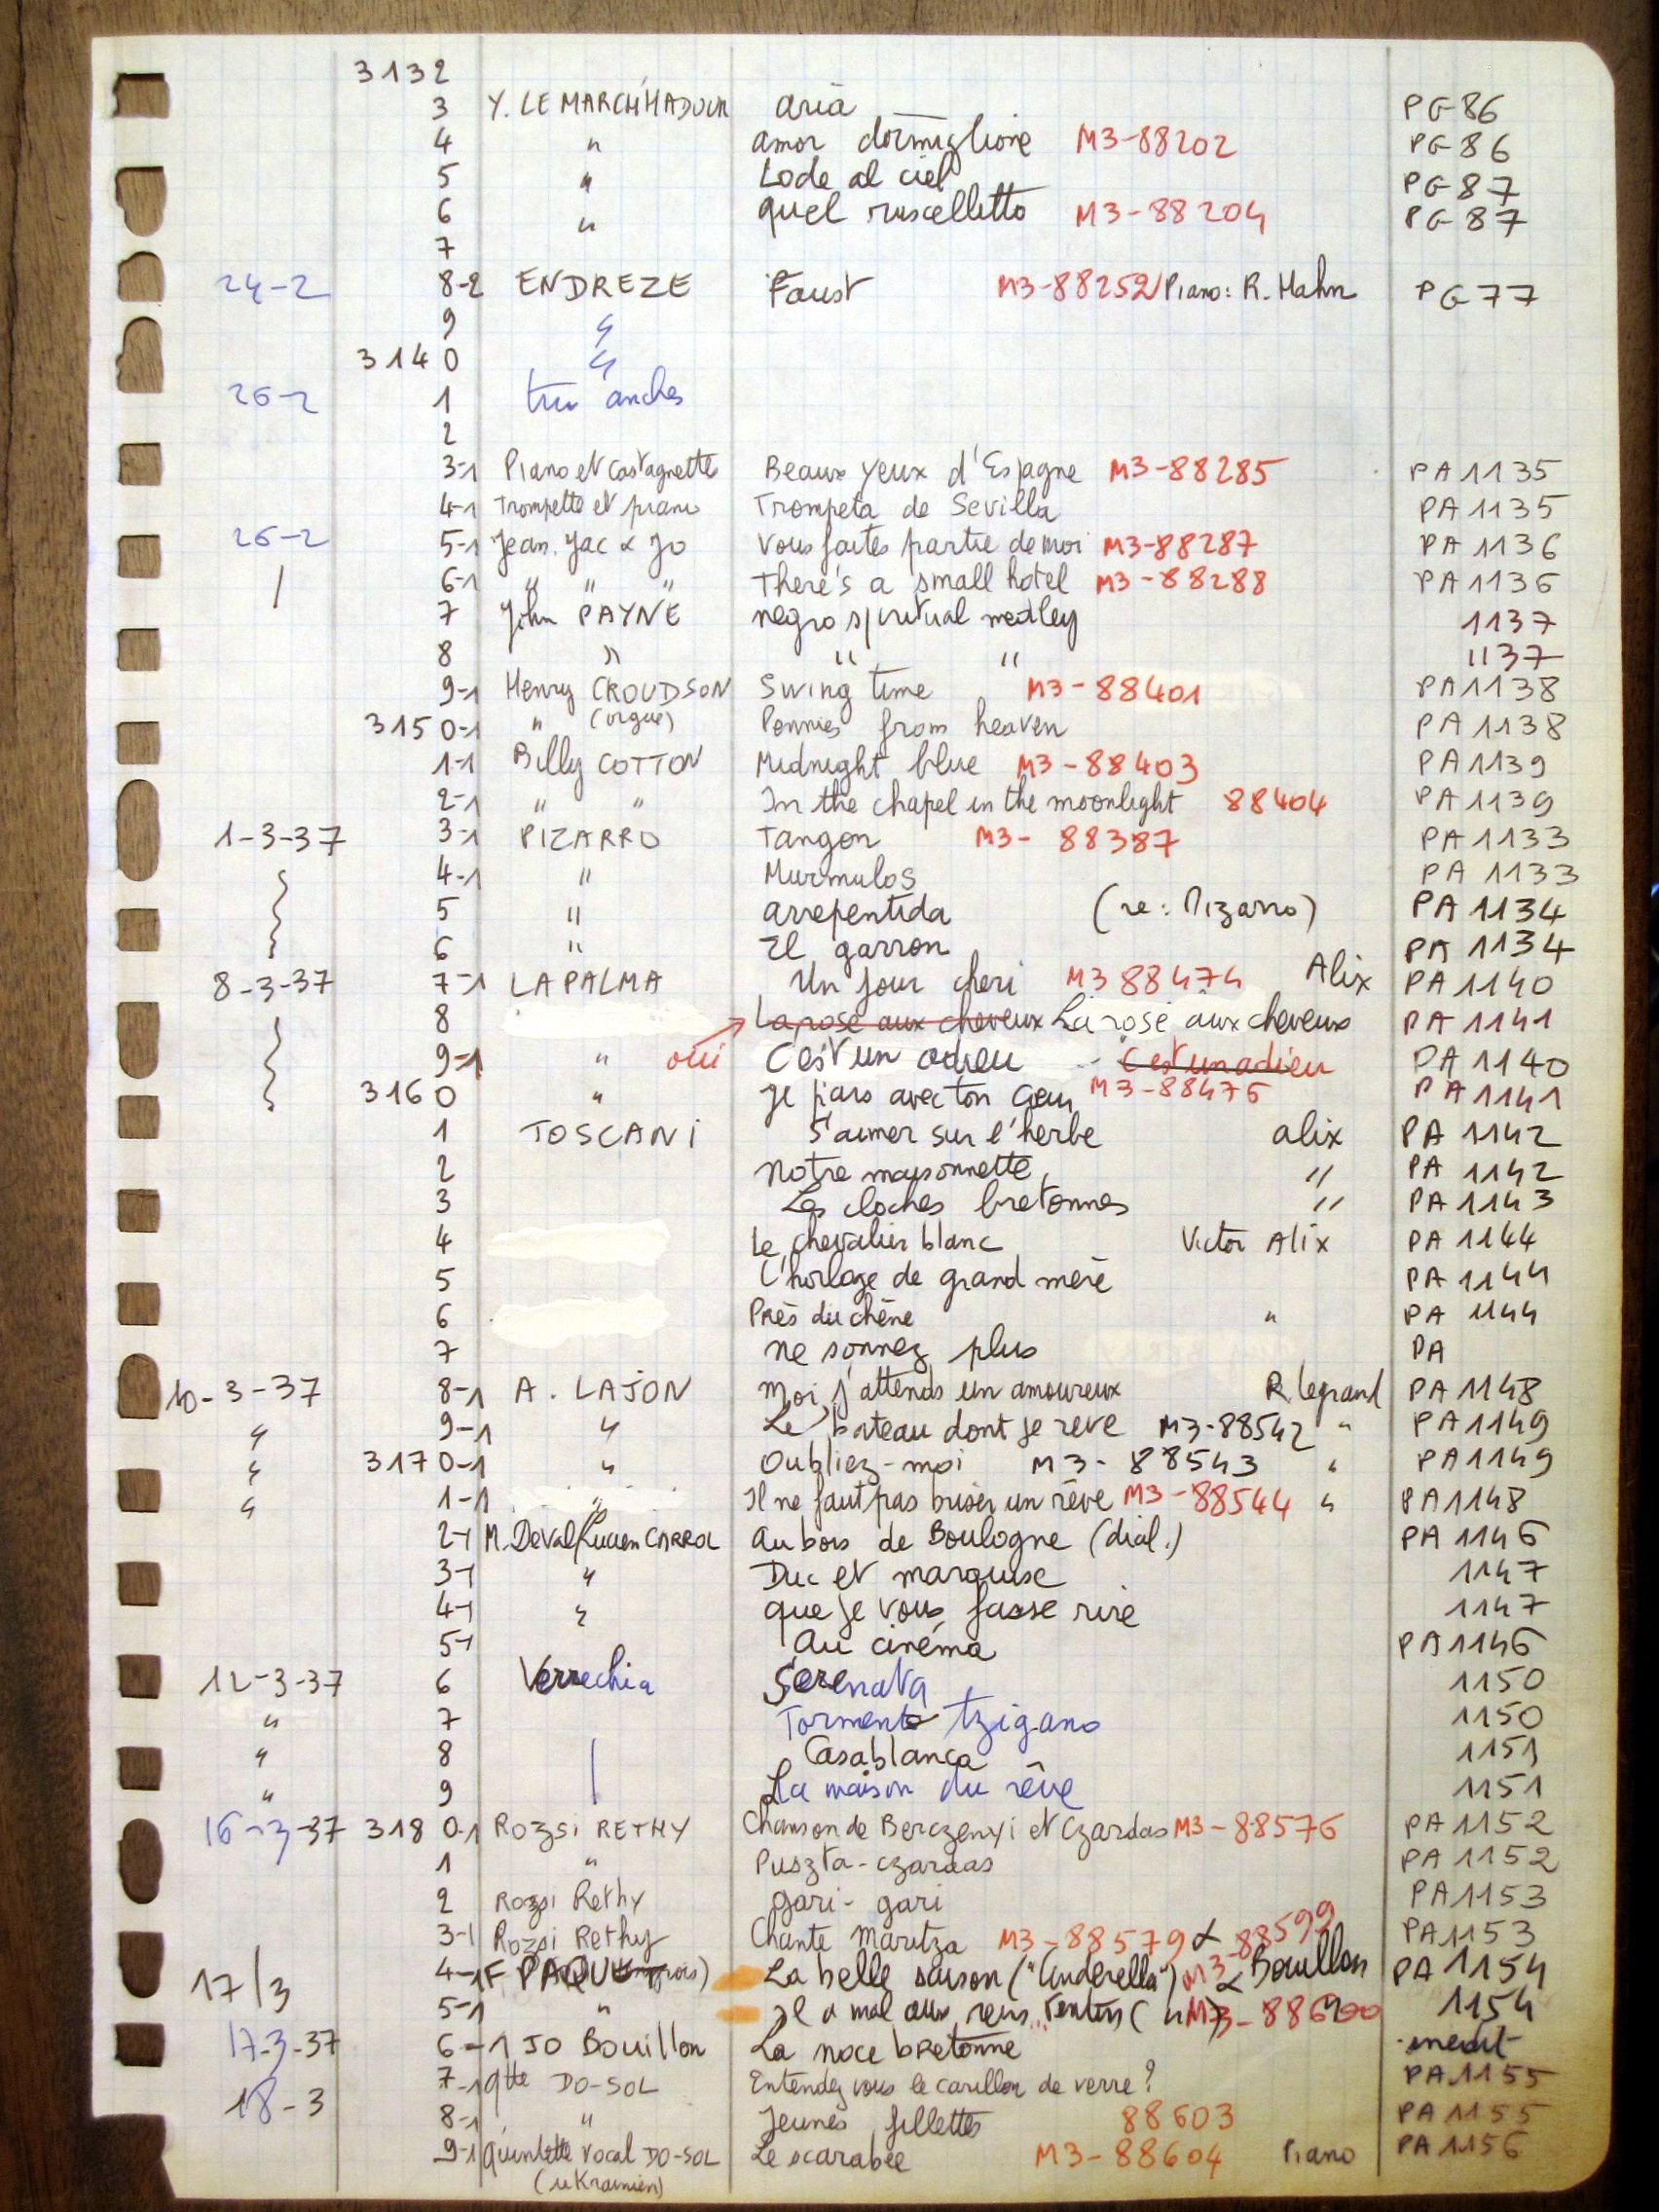 3132
3 Y. LE MARC'HADOUR aria PG 86
4 " amor dormiglione M3-88202 PG 86
5 " Lode al ciel PG 87
6 " quel ruscelletto M3-88204 PG 87
7
24-2 8-2 ENDREZE Faust M3-88252 Piano: R. Hahn PG 77
9 "
3140 "
26-2 1 trio anches
2
3-1 Piano et castagnettes Beaux yeux d'Espagne M3-88285 PA 1135
4-1 Trompette et piano Trompeta de Sevilla PA 1135
26-2 5-1 Jean. Jac & Jo Vous faites partie de moi M3-88287 PA 1136
6-1 " " " There's a small hotel M3-88288 PA 1136
7 John PAYNE negro spiritual medley 1137
8 " " " 1137
9-1 Henry CROUDSON Swing time M3-88401 PA 1138
3150-1 " (orgue) Pennies from heaven PA 1138
1-1 Billy COTTON Midnight blue M3-88403 PA 1139
2-1 " " In the chapel in the moonlight 88404 PA 1139
1-3-37 3-1 PIZARRO Tangon M3-88387 PA 1133
4-1 " Murmulos PA 1133
5 " arrepentida (re: Pizarro) PA 1134
6 " El garron PA 1134
8-3-37 7-1 LA PALMA Un jour cheri M3 88474 Alix PA 1140
8 La rose aux cheveux La rose aux cheveux PA 1141
9-1 " oui C'est un adieu C'est un adieu PA 1140
3160 " Je pars avec ton cœur M3-88476 PA 1141
1 TOSCANI S'aimer sur l'herbe alix PA 1142
2 Notre maisonnette " PA 1142
3 Les cloches bretonnes " PA 1143
4 Le chevalier blanc Victor Alix PA 1144
5 L'horloge de grand mère PA 1144
6 Près du chêne " PA 1144
7 ne sonnez plus PA
10-3-37 8-1 A. LAJON Moi, j'attends un amoureux R. Legrand PA 1148
" 9-1 " Le bateau dont je reve M3-88542 " PA 1149
" 3170-1 " Oubliez-moi M3-88543 " PA 1149
" 1-1 " Il ne faut pas briser un rêve M3-88544 " PA 1148
2-1 M. Deval/Lucien CARROL Au bois de Boulogne (dial.) PA 1146
3-1 " Duc et marquise 1147
4-1 " que je vous fasse rire 1147
5-1 Au cinéma PA 1146
12-3-37 6 Verrechia Serenata 1150
" 7 Tormento tzigano 1150
" 8 Casablanca 1151
" 9 La maison du rêve 1151
16-3-37 3180-1 Rozsi RETHY Chanson de Berczenyi et Czardas M3-88576 PA 1152
1 " Puszta-czardas PA 1152
2 Rozsi Rethy gari-gari PA 1153
3-1 Rozsi Rethy Chante Maritza M3-88579 & M3-88599 PA 1153
17/3 4-1 F PAQUI La belle saison ("Cinderella") & Bouillon PA 1154
5-1 " Il a mal aux reins... Tentin ( " ) M3-88600 1154
17-3-37 6-1 JO Bouillon La noce bretonne inedit
7-1 qtte DO-SOL Entendez vous le carillon de verre? PA 1155
18-3 8-1 " Jeunes fillettes 88603 PA 1155
9-1 quintette vocal DO-SOL Le scarabée M3-88604 Piano PA 1156
(ukrainien)